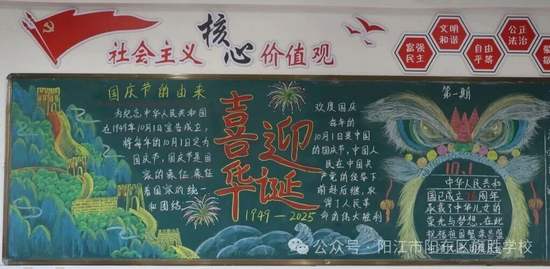 社会主义核心价值观
富强
民主
文明
和谐
自由
平等
公正
法治
国庆节的由来
为纪念中华人民共和国
在1949年10月1日宣告成立,
将每年的10月1日定为
国庆节,国庆节是国
家的象征,象征
着国家的统一
和团结。
喜迎
华诞
1949-2025
欢度国庆
每年的
10月1日是中国
的国庆节,中国人
民在中国共
产党的领导下
前赴后继,取
得了人民革
命的伟大胜利
第一期
10.1
中华人民共和
国已成立
周年
承载了中华儿女的
荣光与梦想,在此
祝祖国繁荣昌盛
公众号·阳江市阳东区旗胜学校